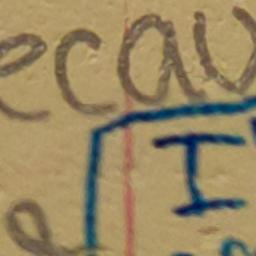 ecau
I'
e